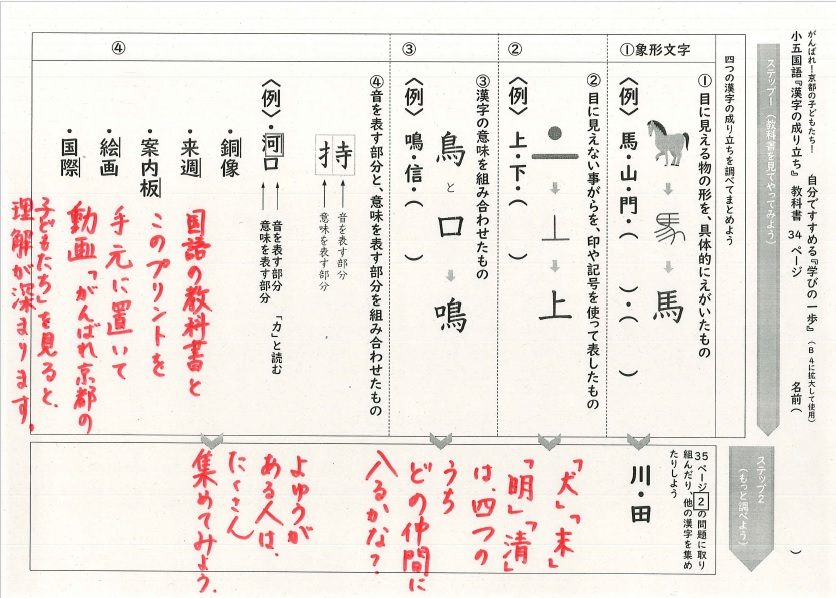 がんばれ！京都の子どもたち！　自分ですすめる『学びの一歩』（Ｂ４に拡大して使用）
小五国語『漢字の成り立ち』　教科書　34　ページ　名前（　　　）
ステップ１（教科書を見てやってみよう）
四つの漢字の成り立ちを調べてまとめよう
①象形文字
①目に見える物の形を、具体的にえがいたもの
馬
馬
〈例〉馬・山・門・（　　）・（　　）
②
②目に見えない事がらを、印や記号を使って表したもの
上
〈例〉上・下・（　　）
③
③漢字の意味を組み合わせたもの
鳥と口　鳴
〈例〉鳴・信・（　　）
④
④音を表す部分と、意味を表す部分を組み合わせたもの
扌寺
音を表す部分
意味を表す部分
〈例〉・河口
音を表す部分　「カ」と読む
意味を表す部分
・銅像
・来週
・案内板
・絵画
・国際
国語の教科書と
このプリントを
手元に置いて
動画「がんばれ京都の
子どもたち」を見ると、
理解が深まります。
ステップ２
（もっと調べよう）
35ページ2の問題に取り
組んだり、他の漢字を集め
たりしよう
川・田
「犬」「末」
「明」「清」
は、四つの
うち
どの仲間に
入るかな？
よゆうが
ある人は、
たくさん
集めてみよう。